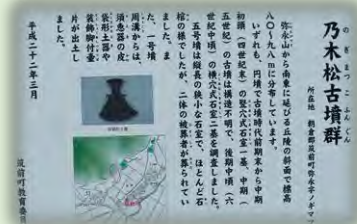 乃木松古墳群
のぎまつこふんぐん
所在地　朝倉郡筑前町弥永字ノギマ
弥永山から南東に延びる丘陵の斜面で標高
八〇～九八ｍに分布しています。
いずれも、円墳で古墳時代前期末から中期
初頭（四世紀末）の竪穴式石室一基、中期（
五世紀）の古墳は構造不明で、後期中頃（六
世紀中頃）の横穴式石室二基を調査しました。
五号墳は縦長の狭小な石室で、ほとんど石
棺の様でしたが、二体の被葬者が葬られてい
ました。ま
た、一号墳
周溝からは、
須恵器の皮
袋形土器や
装飾脚付壷
片が出土し
ました。
平成二十二年三月
筑前町教育委員